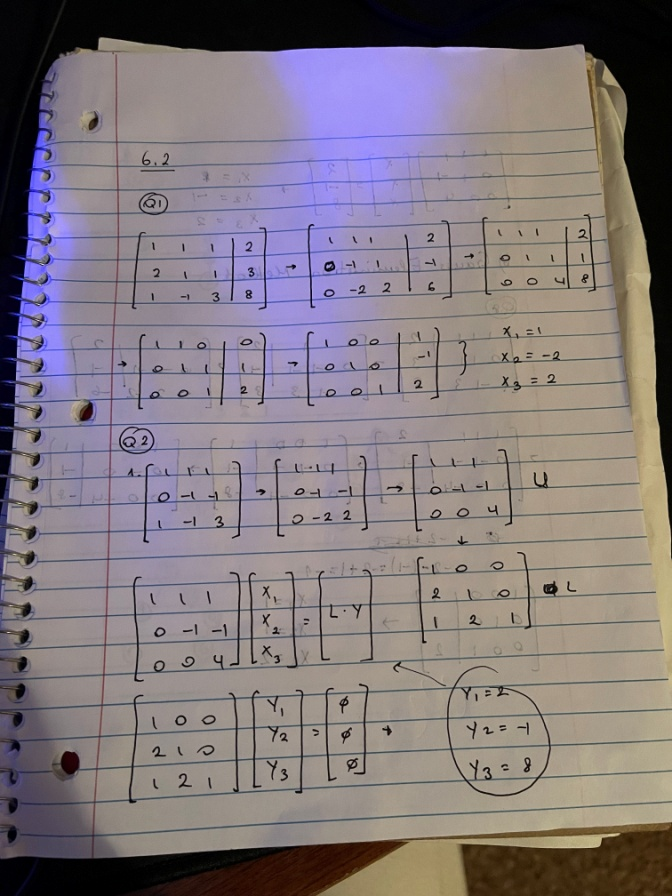 6.2
Q1
1 1 1 | 2
2 1 1 | 3
1 -1 3 | 8
→
1 1 1 | 2
0 -1 1 | -1
0 -2 2 | 6
→
1 1 1 | 2
0 1 1 | 1
0 0 4 | 8
→
1 1 0 | 0
0 1 1 | 1
0 0 1 | 2
→
1 0 0 | 1
0 1 0 | -1
0 0 1 | 2
}
x₁ = 1
x₂ = -2
x₃ = 2
Q2
1.
1 1 1
0 -1 -1
1 -1 3
→
1 1 1
0 -1 -1
0 -2 2
→
1 1 1
0 -1 -1
0 0 4
U
↓
1 0 0
2 1 0
1 2 1
L
1 1 1
0 -1 -1
0 0 4
x₁
x₂
x₃
=
L · Y
1 0 0
2 1 0
1 2 1
Y₁
Y₂
Y₃
=
ϕ
ϕ
ϕ
→
Y₁ = 2
Y₂ = -1
Y₃ = 8